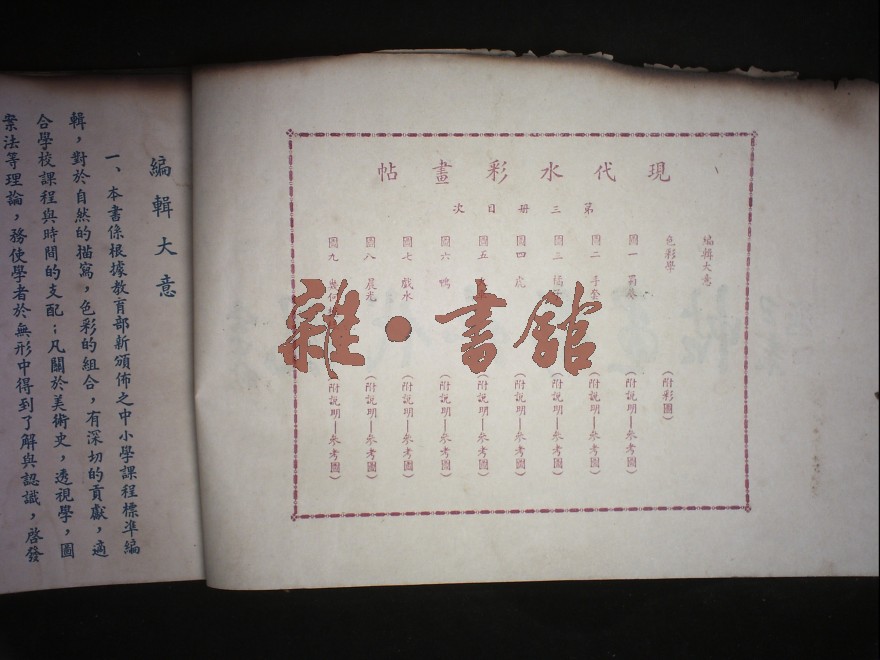 現代水彩畫帖
第三冊目次
編輯大意
色彩學 (附彩圖)
圖一 (附說明—參考圖)
圖二 手套 (附說明—參考圖)
圖三 (附說明—參考圖)
圖四 虎 (附說明—參考圖)
圖五 (附說明—參考圖)
圖六 鴨 (附說明—參考圖)
圖七 戲水 (附說明—參考圖)
圖八 晨光 (附說明—參考圖)
圖九 幾何 (附說明—參考圖)
雜•書館
編輯大意
一、本書係根據教育部新頒佈之中小學課程標準編
輯，對於自然的描寫，色彩的組合，有深切的貢獻，適
合學校課程與時間的支配；凡關於美術史，透視學，圖
案法等理論，務使學者於無形中得到了解與認識，啓發